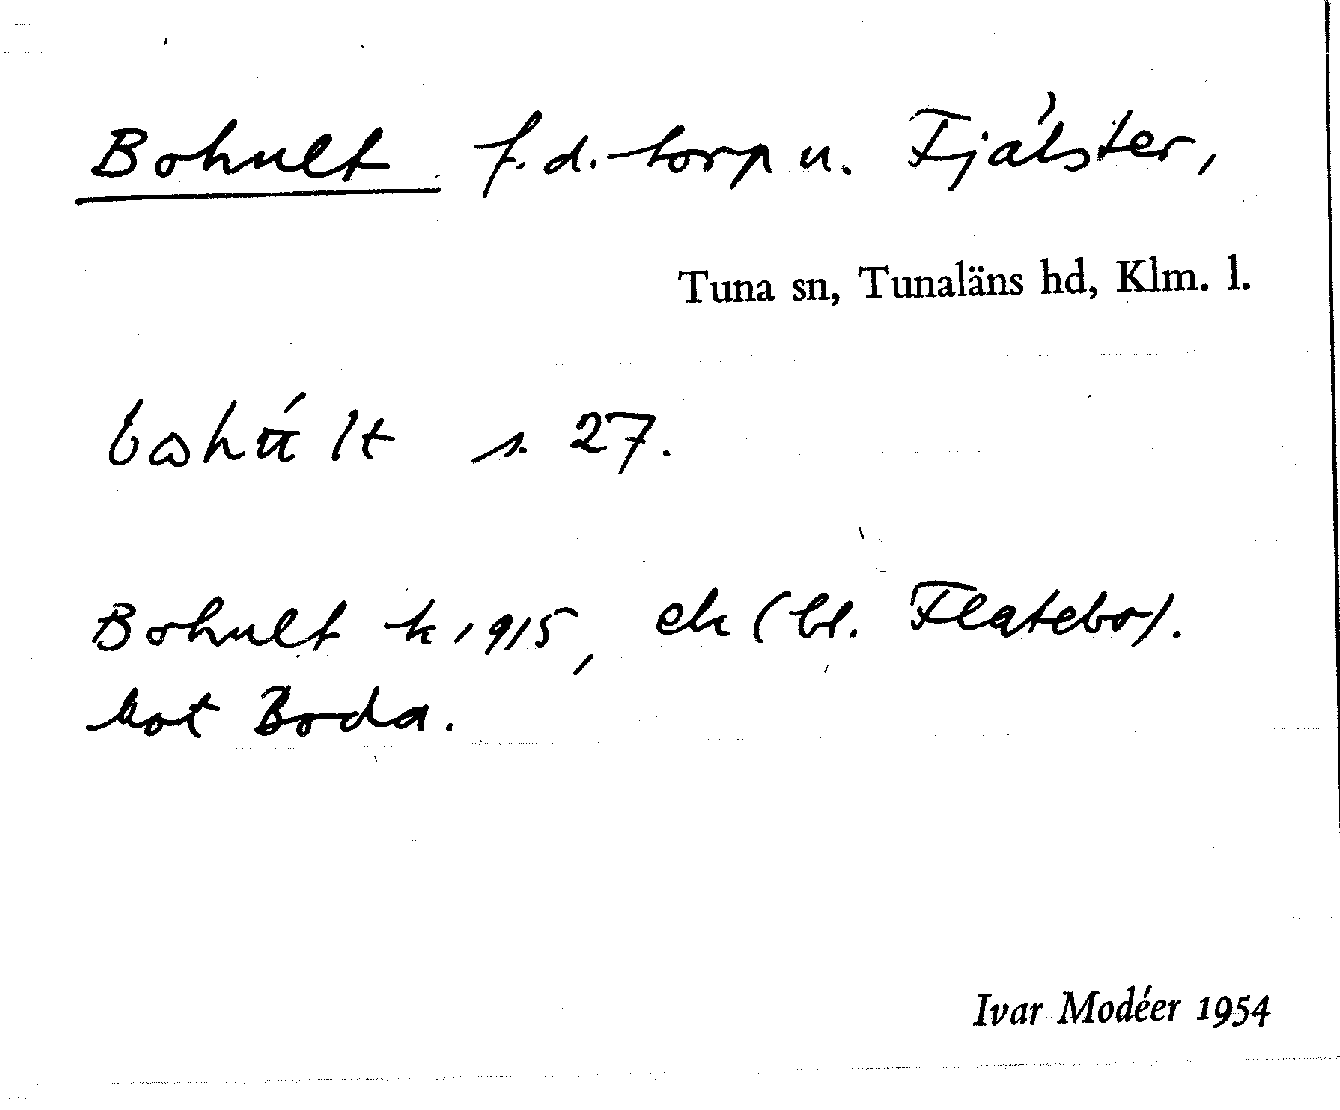 Bohult f.d. torp u. Fjälster,
Tuna sn, Tunaläns hd, Klm. l.
s. 27.
Bohult k 1915, ek (bl. Flatebo).
mot Boda.
Ivar Modéer 1954